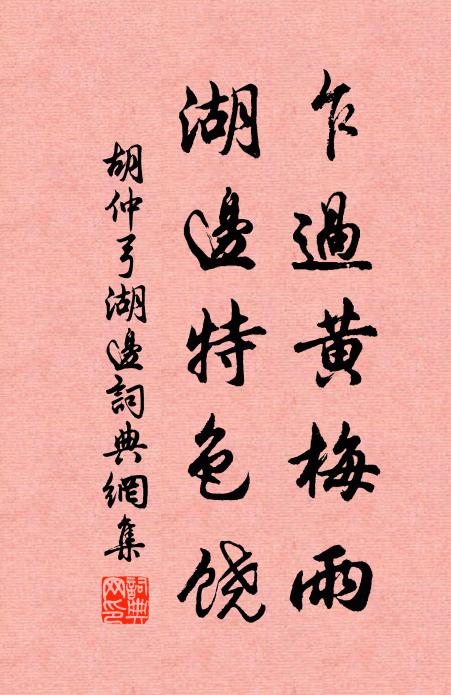 乍過黄梅雨
湖邊特色饶
胡仲弓湖邊詞典網集
詞典網印